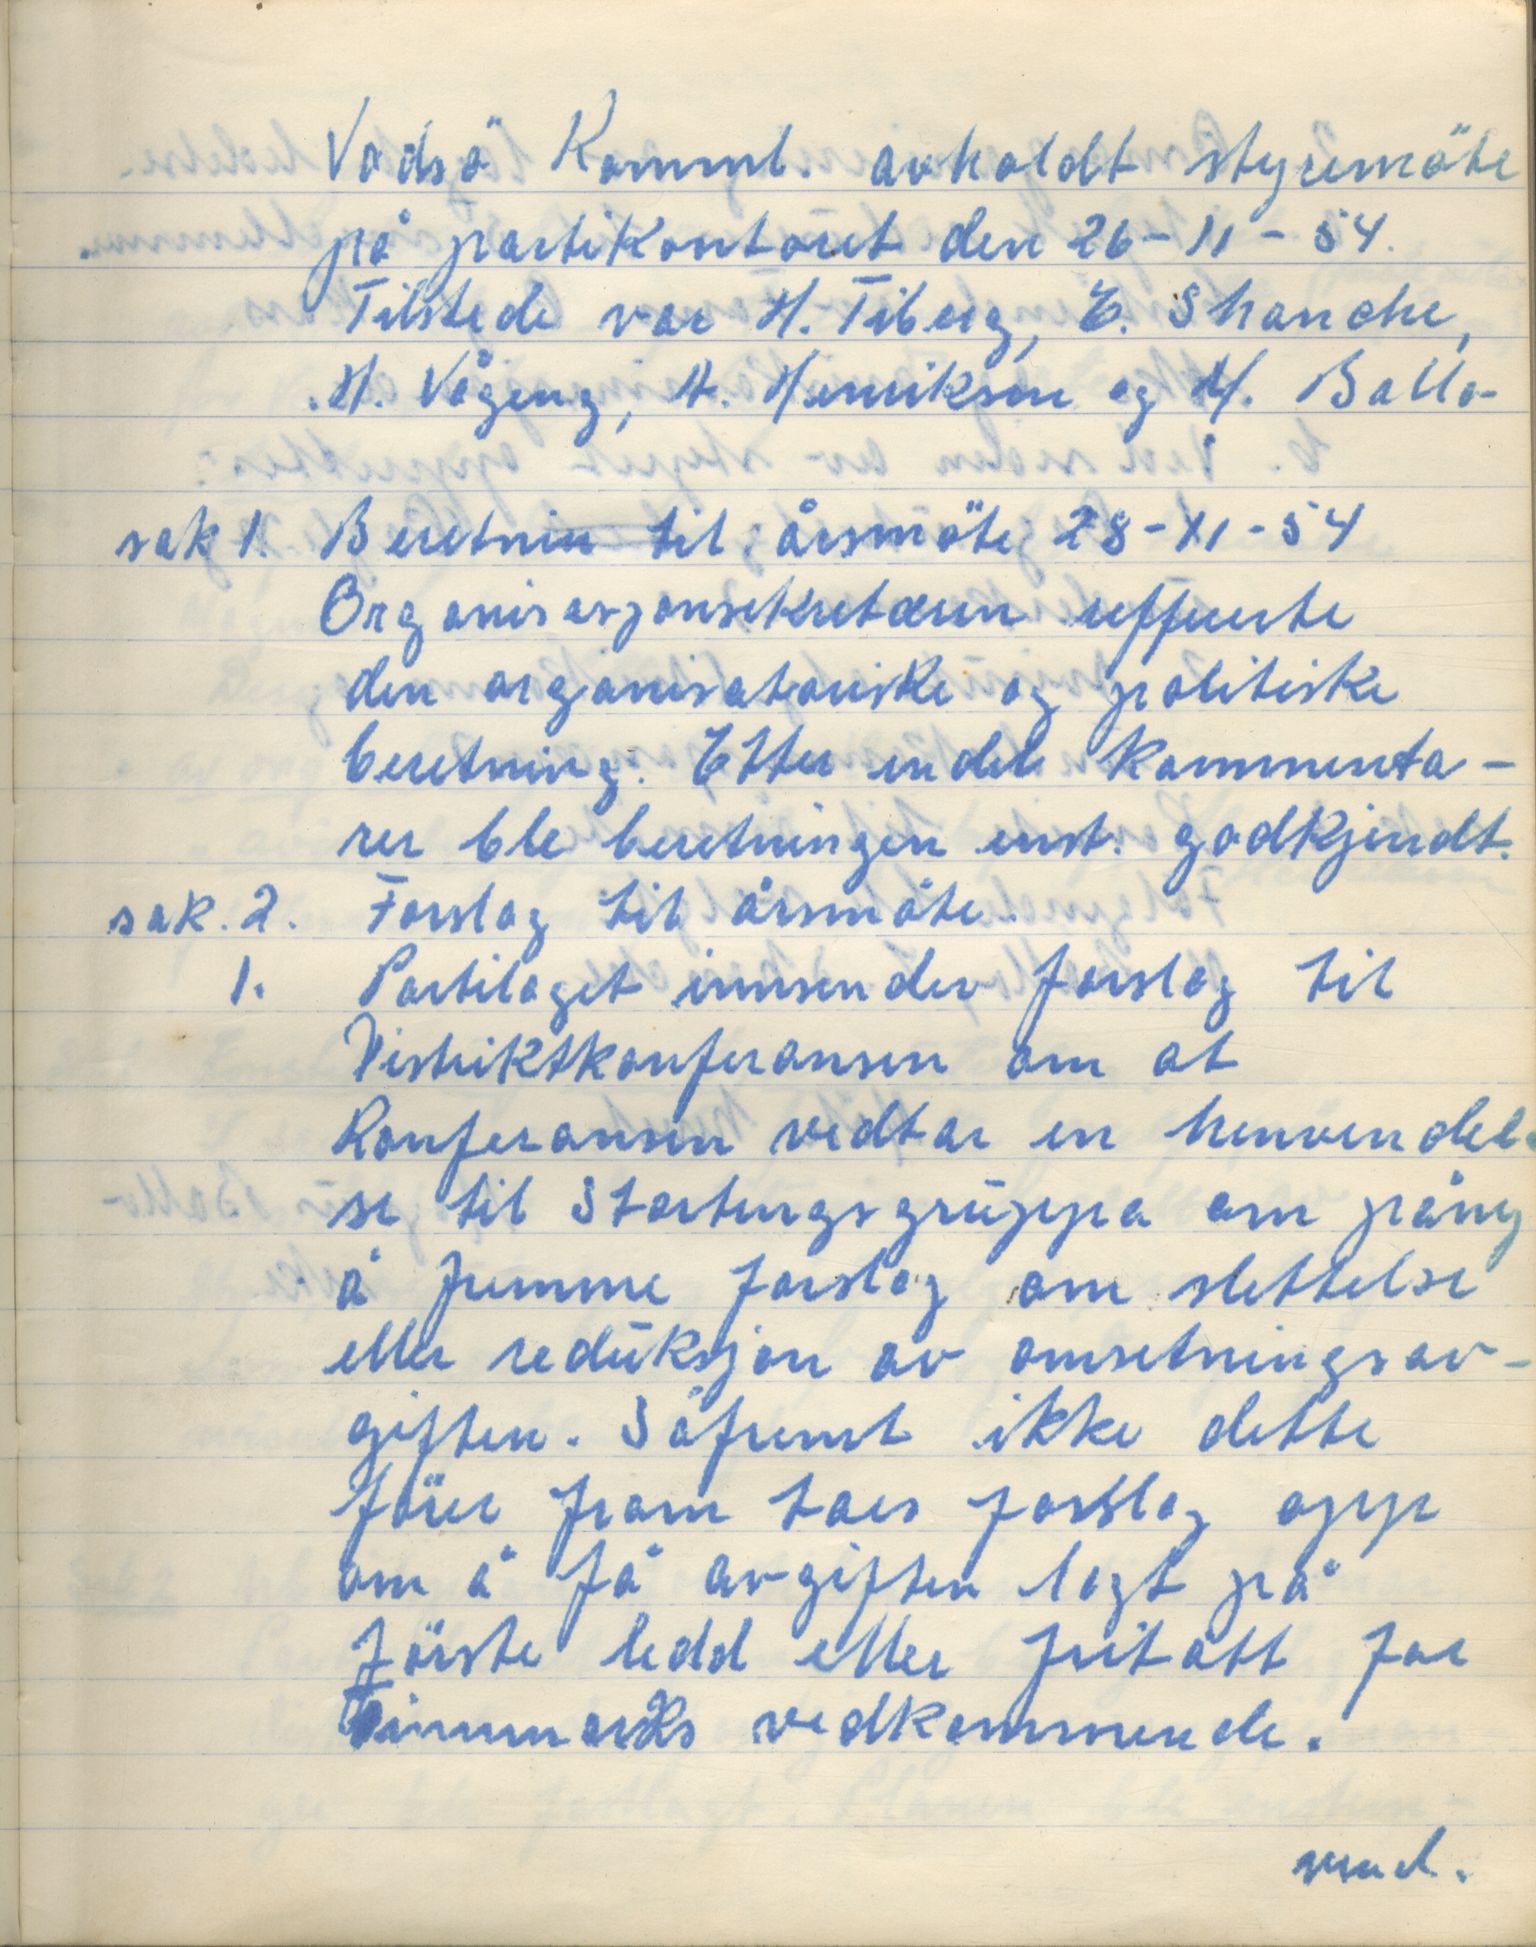 Vadsö Komml. avholdt styremöte
på partikontoret den 26-11-54.
Tilstede var H. Tiberg, E. Skanche,
H. Vågeng, A. Henriksen og H. Ballo-
sak 1. Beretnin til årsmöte 28-11-54
Organisasjonsekretæren refferete
den organisatoriske og politiske
beretning. Etter endel kommenta-
rer ble beretningen enst. godkjendt.
sak. 2. Forslag til årsmöte.
1. Partilaget innsender forslag til
Distriktkonferansen om at
Konferansen vedtar en henvendel-
se til Stortingsgruppa om påny
å fremme forslag om slettelse
eller reduksjon av omsetningsav-
giften. Såfremt ikke dette
förer fram taes forslag opp
om å få avgiften lagt på
förste ledd eller fritatt for
Finnmarks vedkommende.